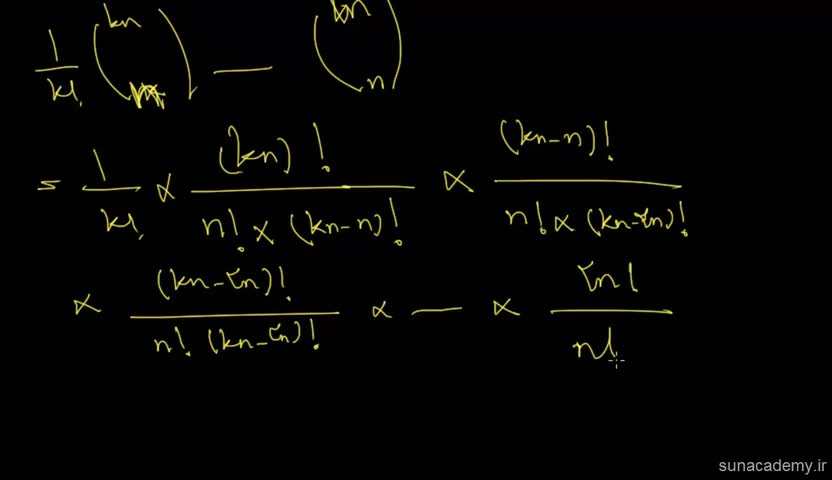 1/k! (kn m) — (kn n)
= 1/k! × (kn)! / n! × (kn-n)! × (kn-n)! / n! × (kn-2n)!
× (kn-2n)! / n! (kn-3n)! × — × 2n! / n!
sunacademy.ir